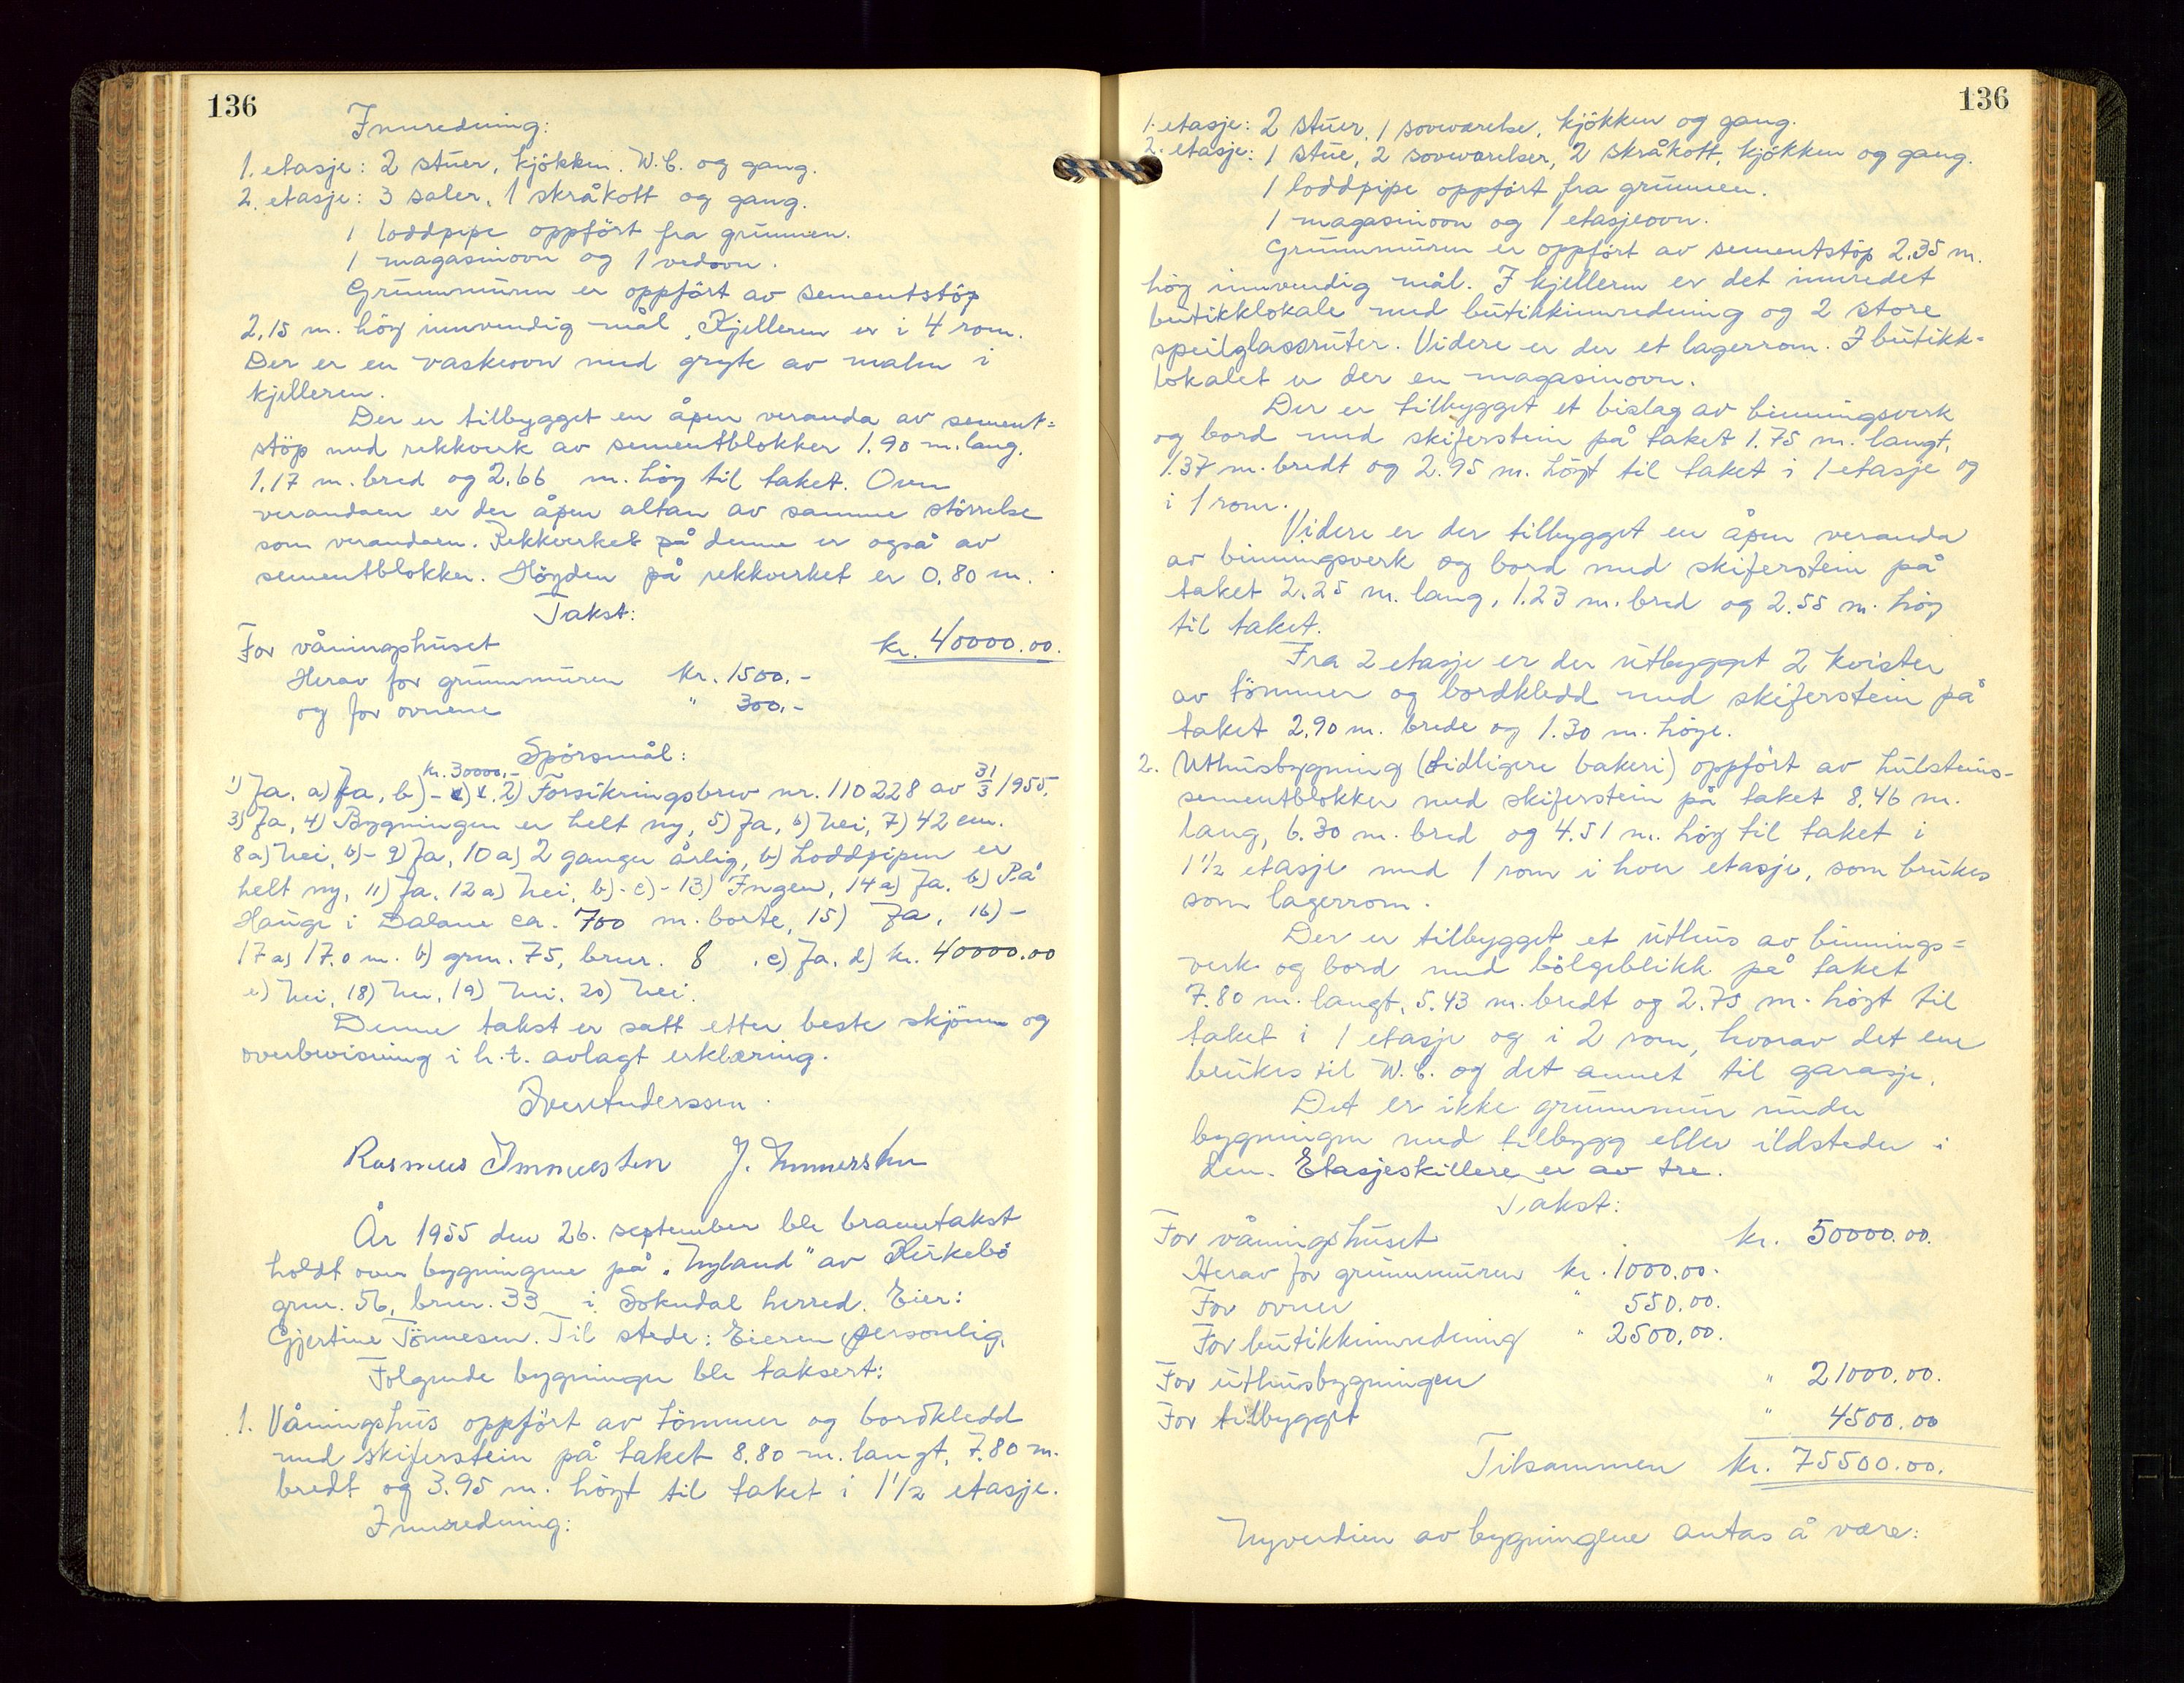 136
Innredning:
1. etasje: 2 stuer, kjökken. W.C. og gang.
2. etasje: 3 saler, 1 skråkott og gang.
1 loddpipe oppfört fra grunnen.
1 magasinovn og 1 vedovn.
Grunnmuren er oppfört av sementstöp
2,15 m. höy innvendig mål. Kjelleren er i 4 rom.
Der er en vaskeovn med gryte av malm i
kjelleren.
Der er tilbygget en åpen veranda av sement=
stöp med rekkverk av sementblokker 1.90 m. lang.
1,17 m. bred og 2,66 m. höy til taket. Oven
verandaen er der åpen altan av samme störrelse
som verandaen. Rekkverket på denne er også av
sementblokker. Höyden på rekkverket er 0.80 m.
Takst:
For våningshuset kr. 40000.00.
Herav for grunnmuren kr. 1500.-
og for ovnene " 300.-
Spörsmål:
kr. 30000,-
1) Ja. a) Ja, b) - c) . 2) Forsikringsbrev nr. 110228 av 31/3 1955,
3) Ja, 4) Bygningen er helt ny, 5) Ja, 6) Nei, 7) 42 cm.
8 a) Nei, b) - 9) Ja, 10 a) 2 ganger årlig, b) Loddpipen er
helt ny, 11) Ja. 12 a) Nei, b) - c) - 13) Ingen, 14 a) Ja. b) På
Hauge i Dalane ca. 700 m. borte, 15) Ja, 16) -
17 a) 17.0 m. b) grn. 75, brnr. 8 . c) Ja. d) kr. 40000.00
e) Nei, 18) Nei, 19) Nei. 20) Nei.
Denne takst er satt etter beste skjönn og
overbevisning i h.t. avlagt erklæring.
Iver Anderssen.
Rasmus Immersten J. Immersten
År 1955 den 26. september ble branntakst
holdt over bygningene på "Nyland" av Kirkebö
grn. 56, brnr. 33 i Sokndal herred. Eier:
Gjertine Tönnesen. Til stede: Eieren personlig.
Folgende bygninger ble taksert:
1. Våningshus oppfört av tömmer og bordkledd
med skiferstein på taket 8.80 m. langt, 7.80 m.
bredt og 3.95 m. höyt til taket i 1 1/2 etasje.
Innredning:
136
1. etasje: 2 stuer, 1 soveværelse, kjökken og gang.
2. etasje: 1 stue, 2 soveværelser, 2 skråkott, kjökken og gang.
1 loddpipe oppfört fra grunnen.
1 magasinovn og 1 etasjeovn.
Grunnmuren er oppfört av sementstöp 2.35 m.
höy innvendig mål. I kjelleren er det innredet
butikklokale med butikkinnredning og 2 store
speilglassruter. Videre er der et lagerrom. I butikk=
lokalet er der en magasinovn.
Der er tilbygget et bislag av binningsverk
og bord med skiferstein på taket 1.75 m. langt,
1.37 m. bredt og 2.95 m. höyt til taket i 1 etasje og
i 1 rom.
Videre er der tilbygget en åpen veranda
av binningsverk og bord med skiferstein på
taket 2.25 m. lang, 1.23 m. bred og 2.55 m. höy
til taket.
Fra 2 etasje er der utbygget 2 kvister
av tömmer og bordkledd med skiferstein på
taket 2.90 m. brede og 1.30 m. höye.
2. Uthusbygning (tidligere bakeri) oppfört av hulsteins-
sementblokker med skiferstein på taket 8.46 m.
lang, 6.30 m. bred og 4.51 m. höy til taket i
1 1/2 etasje med 1 rom i hver etasje, som brukes
som lagerrom.
Der er tilbygget et uthus av binnings=
verk og bord med bölgeblikk på taket
7.80 m. langt, 5.43 m. bredt og 2.75 m. höyt til
taket i 1 etasje og i 2 rom, hvorav det ene
brukes til W.C. og det annet til garasje.
Det er ikke grunnmur under
bygningen med tilbygg eller ildsteder i
den. Etasjeskillere er av tre.
Takst:
For våningshuset kr. 50000.00.
Herav for grunnmuren kr. 1000.00.
For ovner " 550.00.
For butikkinnredning " 2500.00.
For uthusbygningen " 21000.00.
For tilbygget " 4500.00
Tilsammen kr. 75500.00.
Nyverdien av bygningene antas å være: